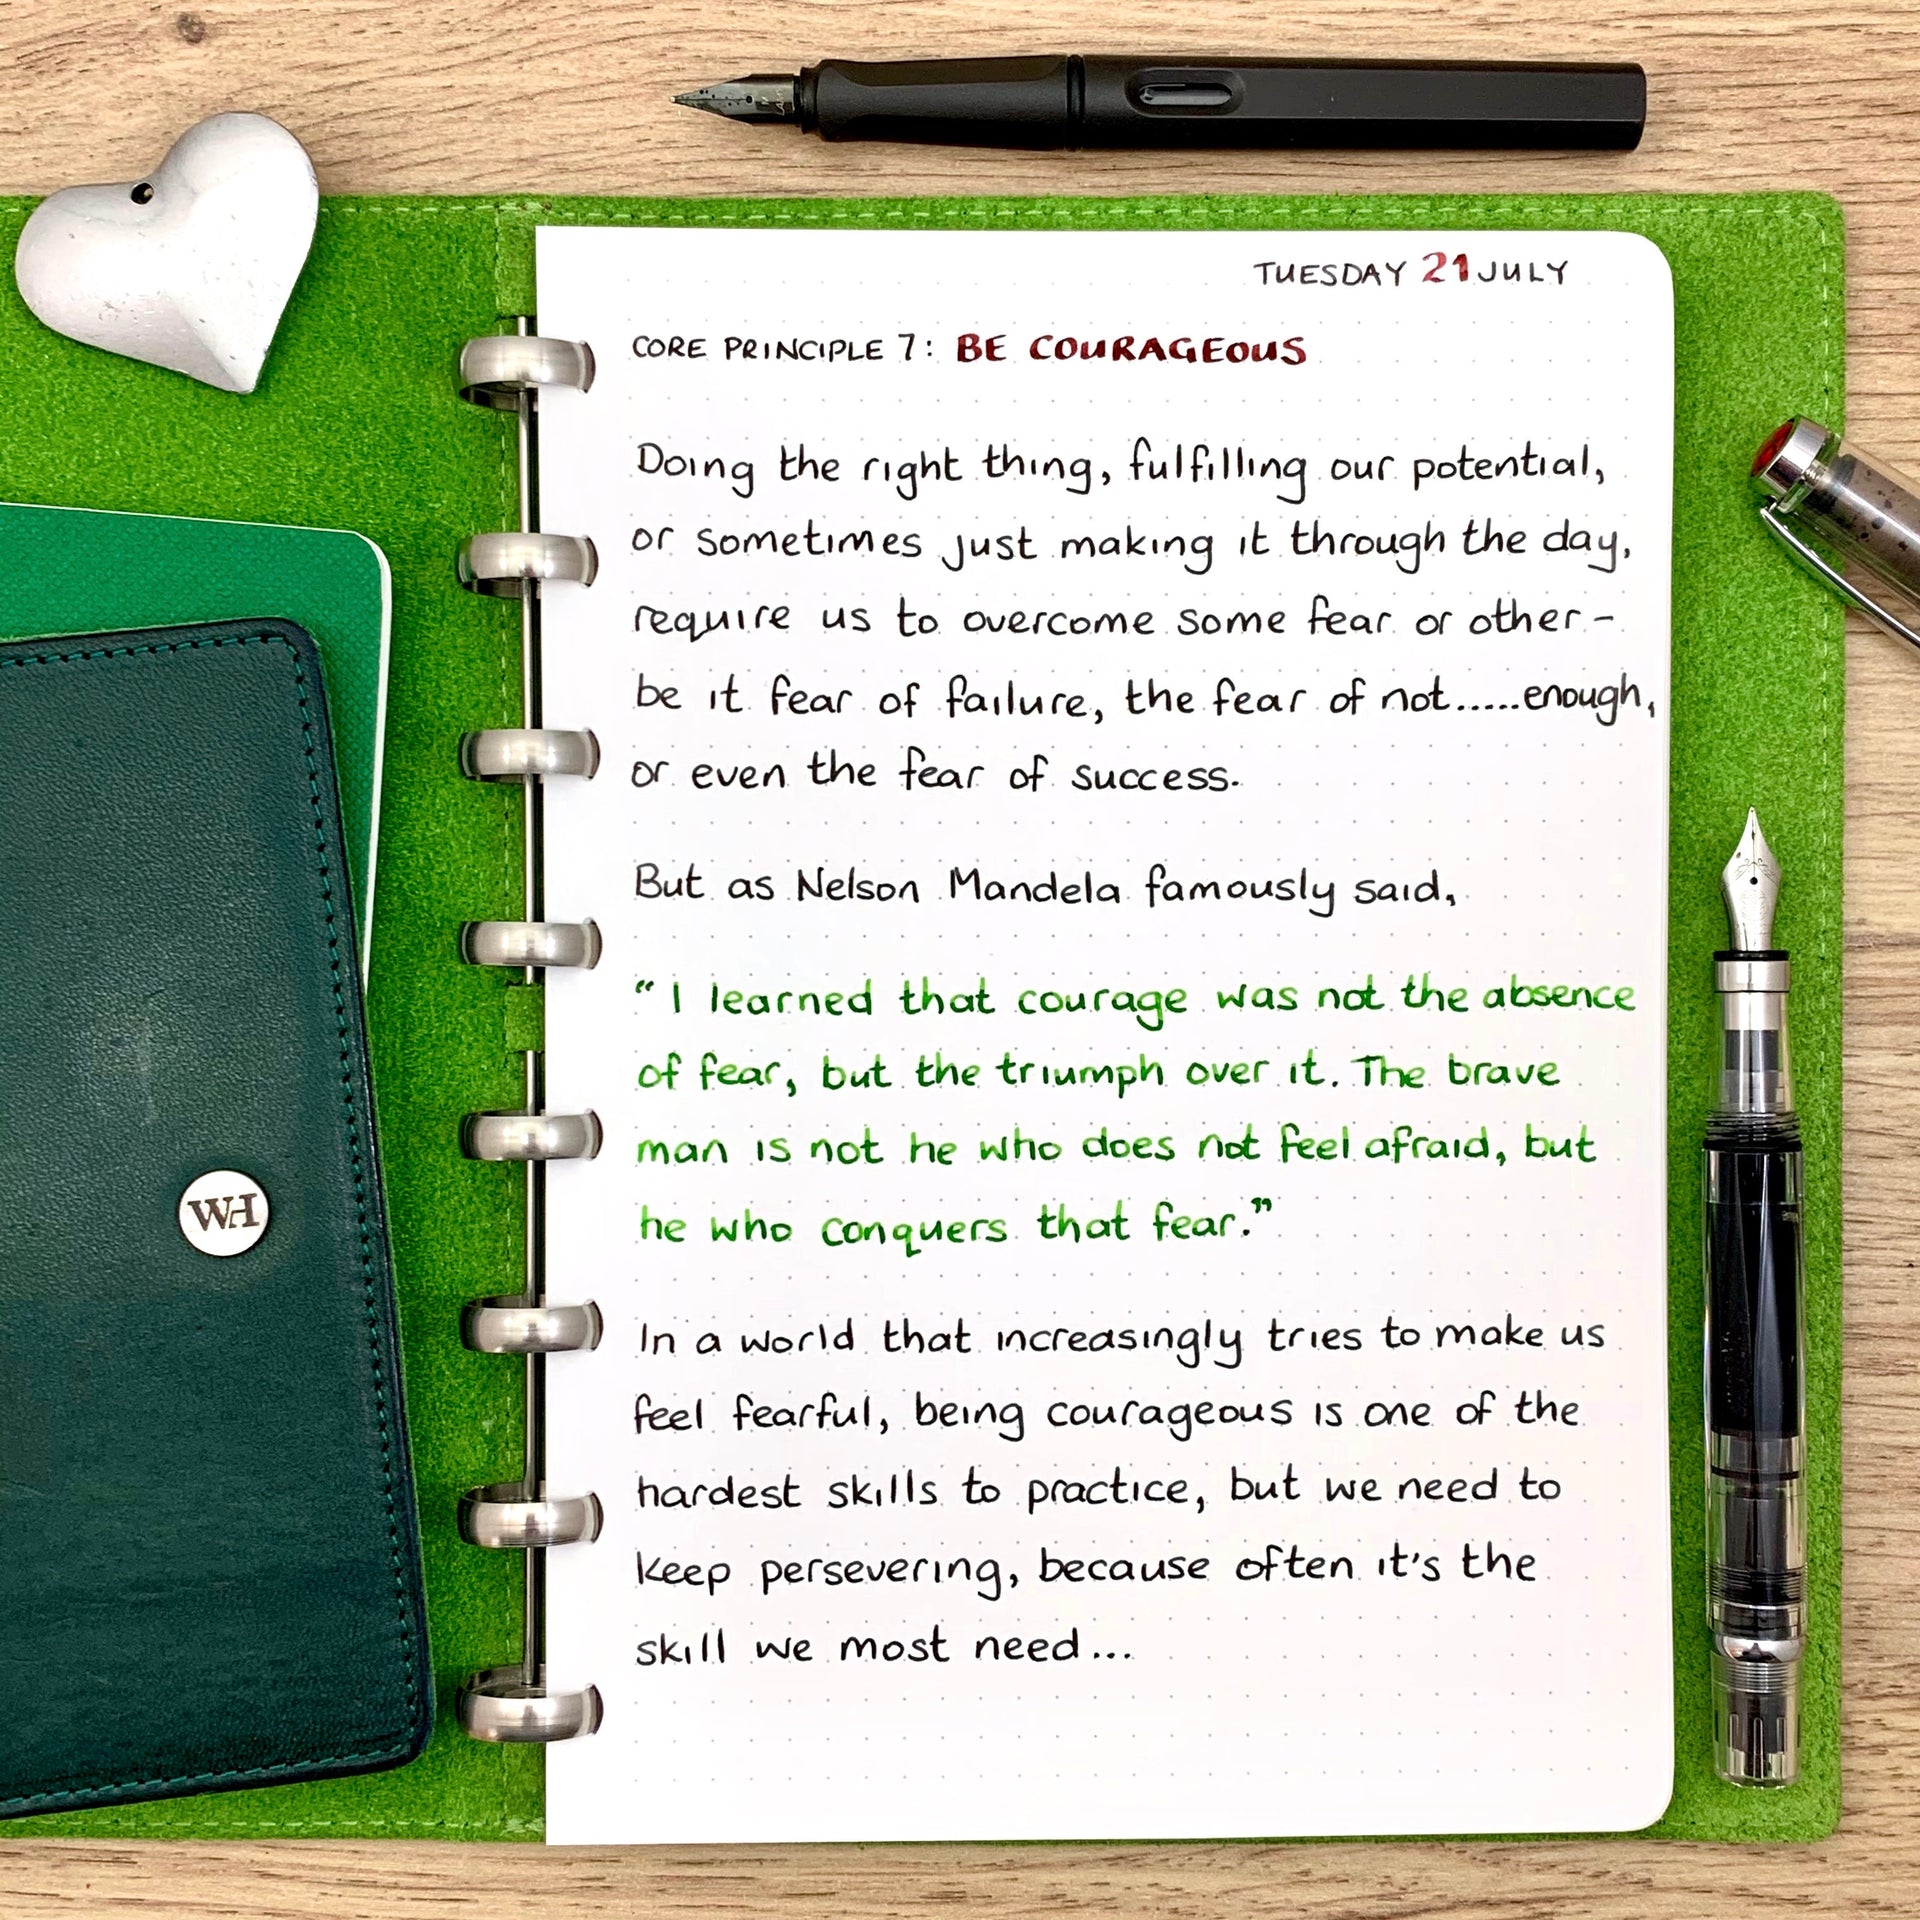 TUESDAY 21 JULY
CORE PRINCIPLE 7: BE COURAGEOUS
Doing the right thing, fulfilling our potential,
or sometimes just making it through the day,
require us to overcome some fear or other –
be it fear of failure, the fear of not.....enough,
or even the fear of success.
But as Nelson Mandela famously said,
“I learned that courage was not the absence
of fear, but the triumph over it. The brave
man is not he who does not feel afraid, but
he who conquers that fear.”
In a world that increasingly tries to make us
feel fearful, being courageous is one of the
hardest skills to practice, but we need to
keep persevering, because often it's the
skill we most need...
WH
LAMY